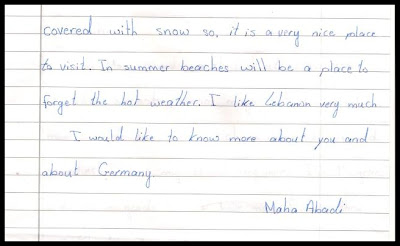 covered with snow so, it is a very nice place
to visit. In summer beaches will be a place to
forget the hot weather. I like Lebanon very much
I would like to know more about you and
about Germany.
Maha Abadi